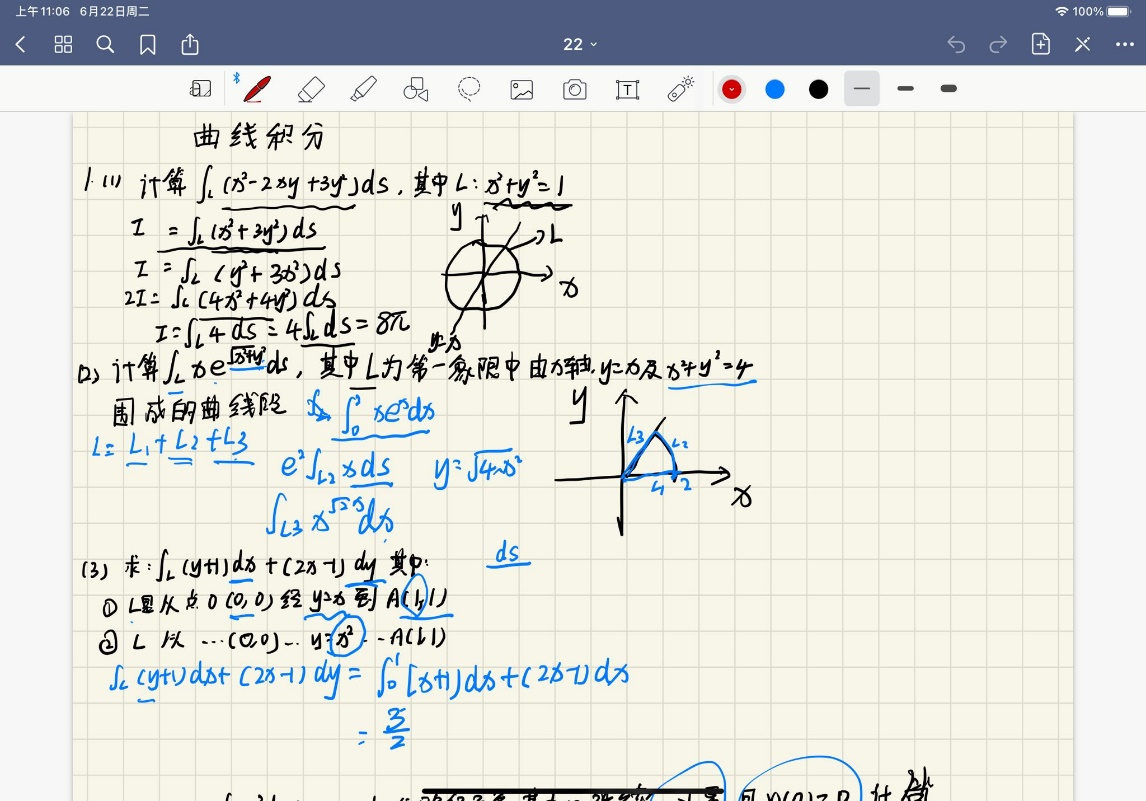 上午11:06 6月22日周二
100%
22
曲线积分
1.(1) 计算 ∫L (x²-2xy+3y²)ds, 其中 L: x²+y²=1
I = ∫L (x²+3y²) ds
I = ∫L (y²+3x²) ds
2I = ∫L (4x²+4y²) ds
I = ∫L 4 ds = 4∫L ds = 8π
y
L
x
y=x
(2) 计算 ∫L x e^√(x²+y²) ds, 其中 L 为第一象限中由 x轴, y=x 及 x²+y²=4
围成的曲线段
∫₀ xe^x dx
L = L1 + L2 + L3
e² ∫L2 x ds y=√(4-x²)
∫L3 x^√2x dx
y
L3
L2
L1
2
x
ds
(3) 求: ∫L (y+1)dx + (2x-1) dy 其中:
① L是从点 O(0,0) 经 y=x 到 A(1,1)
② L 从 ...(0,0)... y=x² -- A(1,1)
∫L (y+1)dx + (2x-1) dy = ∫₀¹ [x+1)dx + (2x-1)dx
= 3/2